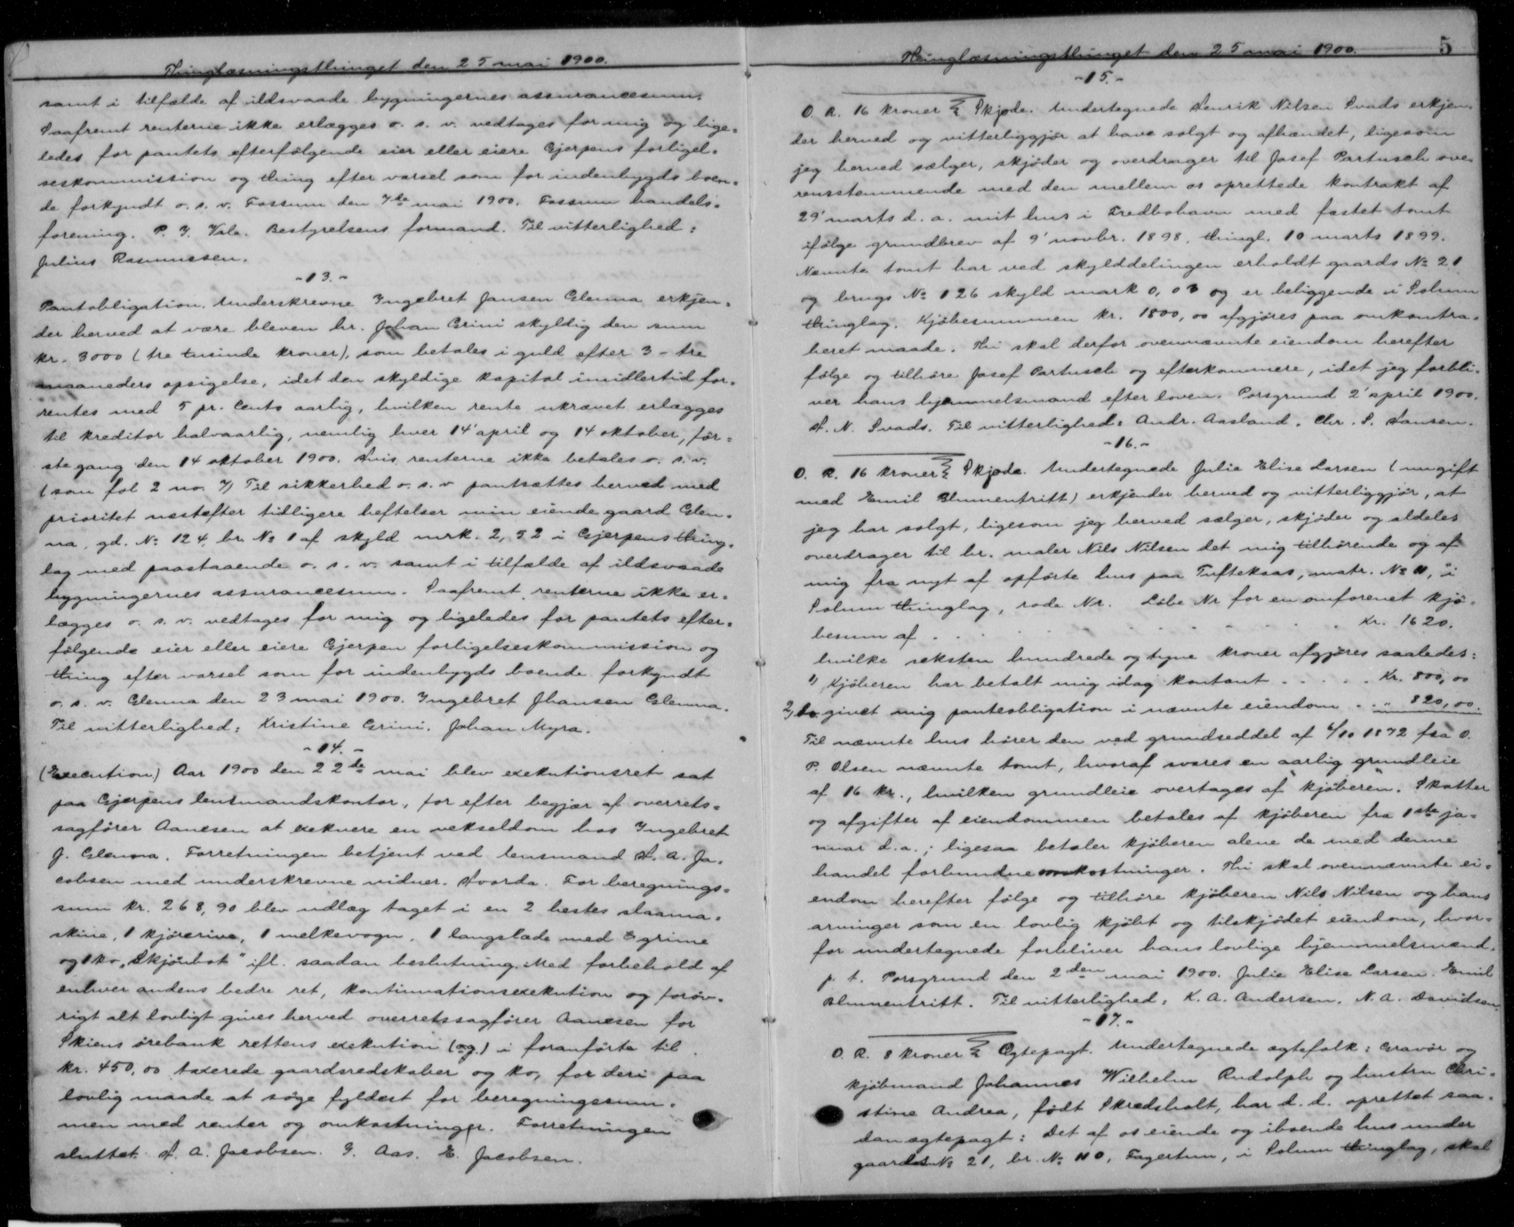 Thinglæsningsthinget den 25 mai 1900.
samt i tilfælde af ildsvaade bygningernes assurancesum.
Saafremt renterne ikke erlægges o. s. v. vedtages for mig og lige-
ledes for pantets efterfølgende eier eller eiere Gjerpens forligel-
seskommission og thing efter varsel som for indenbygds boen-
de forkyndt o. s. v. Fossum den 7de mai 1900. Fossum handels-
forening. P. J. Bestyrelsens formand. Til vitterlighed:
Julius Rasmussen.
-13.-
Pantobligation. Underskrevne Ingebret Jansen Glenna erkjen-
der herved at være bleven hr. Johan Grini skyldig den sum
kr. 3000 (tre tusinde kroner), som betales i guld efter 3 - tre
maaneders opsigelse, idet den skyldige kapital imidlertid for-
rentes med 5 pr. cents aarlig, hvilken rente ukrævet erlægges
til kreditor halvaarlig, nemlig hver 14' april og 14 oktober, før-
ste gang den 14 oktober 1900. Hvis renterne ikke betales o. s. v.
(som fol 2 no. 7) Til sikkerhed o. s. v. pantsættes herved med
prioritet næstefter tidligere heftelser min eiende gaard Glen-
na, gd. No 124, br. No 1 af skyld mrk. 2,92 i Gjerpens thing-
lag med paastaaende o. s. v. samt i tilfælde af ildsvaade
bygningernes assurancesum. Saafremt renterne ikke er-
lægges o. s. v. vedtages for mig og ligeledes for pantets efter-
følgende eier eller eiere Gjerpen forligelseskommission og
thing efter varsel som for indenbygds boende forkyndt
o. s. v. Glenna den 23 mai 1900. Ingebret Jhansen Glenna.
Til vitterlighed: Kristine Grini. Johan Myra.
-14.-
(Execution) Aar 1900 den 22de mai blev exekutionsret sat
paa Gjerpens lensmandskontor, for efter begjær af overrets-
sagfører Aanesen at exekvere en vekseldom hos Ingebret
J. Glenna. Forretningen betjent ved lensmand H. A. Ja-
cobsen med underskrevne vidner. Hvorda. For beregnings-
sum kr. 268,90 blev udlæg taget i en 2 hestes slaama-
skine, 1 kjørerive, 1 melkevogn, 1 langslæde med grime
og 1 ko „Skjønbot" ifl. saadan beslutning. Med forbehold af
enhver andens bedre ret, kontinuationsexekution og forøv-
rigt alt lovligt gives herved overretssagfører Aanesen for
Skiens ørebank rettens exekution (og) i foranførte til
kr. 450,00 taxerede gaardsredskaber og ko, for deri paa
lovlig maade at søge fyldest for beregningssum-
men med renter og omkostninger. Forretningen
sluttet. H. A. Jacobsen. J. Aas. E. Jacobsen.
Thinglæsningsthinget den 25 mai 1900. 5
-15.-
O. R. 16 kroner Skjøde. Undertegnede Henrik Nilsen Svads erkjen-
der herved og vitterliggjør at have solgt og afhændet, ligesom
jeg herved sælger, skjøder og overdrager til Josef Partusch ove-
rensstemmende med den mellem os oprettede kontrakt af
29' marts d. a. mit hus i Fredbohavn med fæstet tomt
ifølge grundbrev af 9' novbr. 1898, thingl. 10 marts 1899.
Nævnte tomt har ved skylddelingen erholdt gaards No 21
og brugs No 126 skyld mark 0,03 og er beliggende i Solum
thinglag. Kjøbesummen kr. 1800,00 afgjøres paa omkontra-
heret maade. Thi skal derfor ovennævnte eiendom herefter
følge og tilhøre Josef Partusch og efterkommere, idet jeg forbli-
ver hans hjemmelsmand efter loven. Porsgrund 2' april 1900.
H. N. Svads. Til vitterlighed: Andr. Aasland. Chr. S. Hansen.
-16.-
O. R. 16 kroner Skjøde. Undertegnede Julie Elise Larsen (nu gift
med Emil Blumentritt) erkjender herved og vitterliggjør, at
jeg har solgt, ligesom jeg herved sælger, skjøder og aldeles
overdrager til hr. maler Nils Nilsen det mig tilhørende og af
mig fra nyt af opførte hus paa Tufteksas, matr. No 11, i
Solum thinglag, rode Nr. Løbe Nr for en omforenet kjø-
besum af . . . . . . . . . . kr. 1620.
hvilke seksten hundrede og tyve kroner afgjøres saaledes:
1) Kjøberen har betalt mig idag kontant . . . . . kr. 800,00
2) do givet mig panteobligation i nævnte eiendom . . . " 820,00.
Til nævnte hus hører den ved grundseddel af 6/10 1872 fra O.
P. Olsen nævnte tomt, hvoraf svares en aarlig grundleie
af 16 kr., hvilken grundleie overtages af kjøberen. Skatter
og afgifter af eiendommen betales af kjøberen fra 1ste ja-
nuar d. a.; ligesaa betaler kjøberen alene de med denne
handel forbundne omkostninger. Thi skal ovennævnte ei-
endom herefter følge og tilhøre kjøberen Nils Nilsen og hans
arvinger som en lovlig kjøbt og tilskjødet eiendom, hvor-
for undertegnede forbliver hans lovlige hjemmelsmænd.
p. t. Porsgrund den 2den mai 1900. Julie Elise Larsen. Emil
Blumentritt. Til vitterlighed: K. A. Andersen. N. A. Davidsen.
-17.-
O. R. 8 kroner Egtepagt. Undertegnede egtefolk: Gravør og
kjøbmand Johannes Wilhelm Rudolph og hustru Chri-
stine Andrea, født Skredsholt, har d. d. oprettet saa-
dan egtepagt: Det af os eiende og iboende hus under
gaards No 21, br. No 110, Fagertun, i Solum thinglag, skal